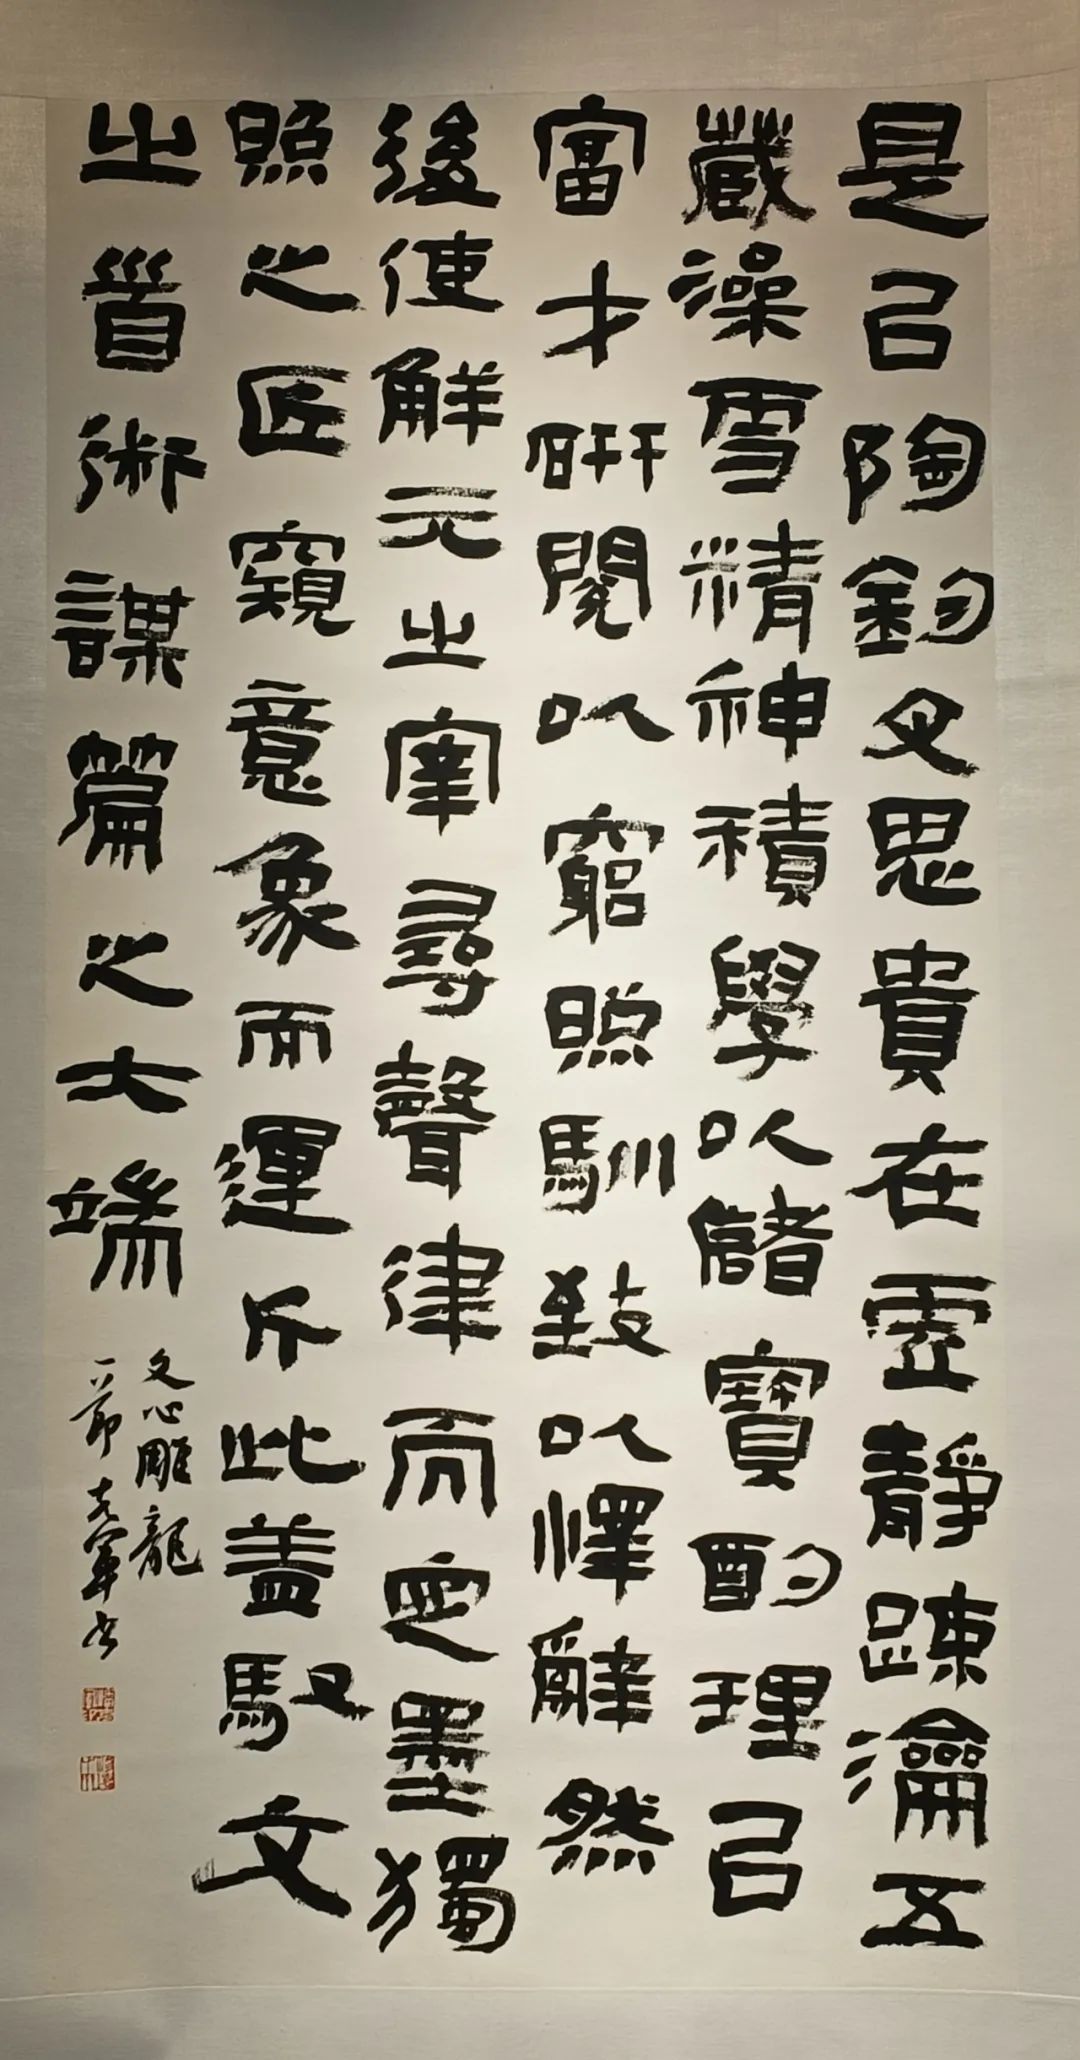 是㠯陶鈞文思貴在虛靜疎瀹五
藏澡雪精神積學以儲寶酌理㠯
富才研閱以窮照馴致以懌辭然
後使解元之宰尋聲律而定墨獨
照之匠窺意象而運斤此蓋馭文
之首術謀篇之大端
文心雕龍
一節